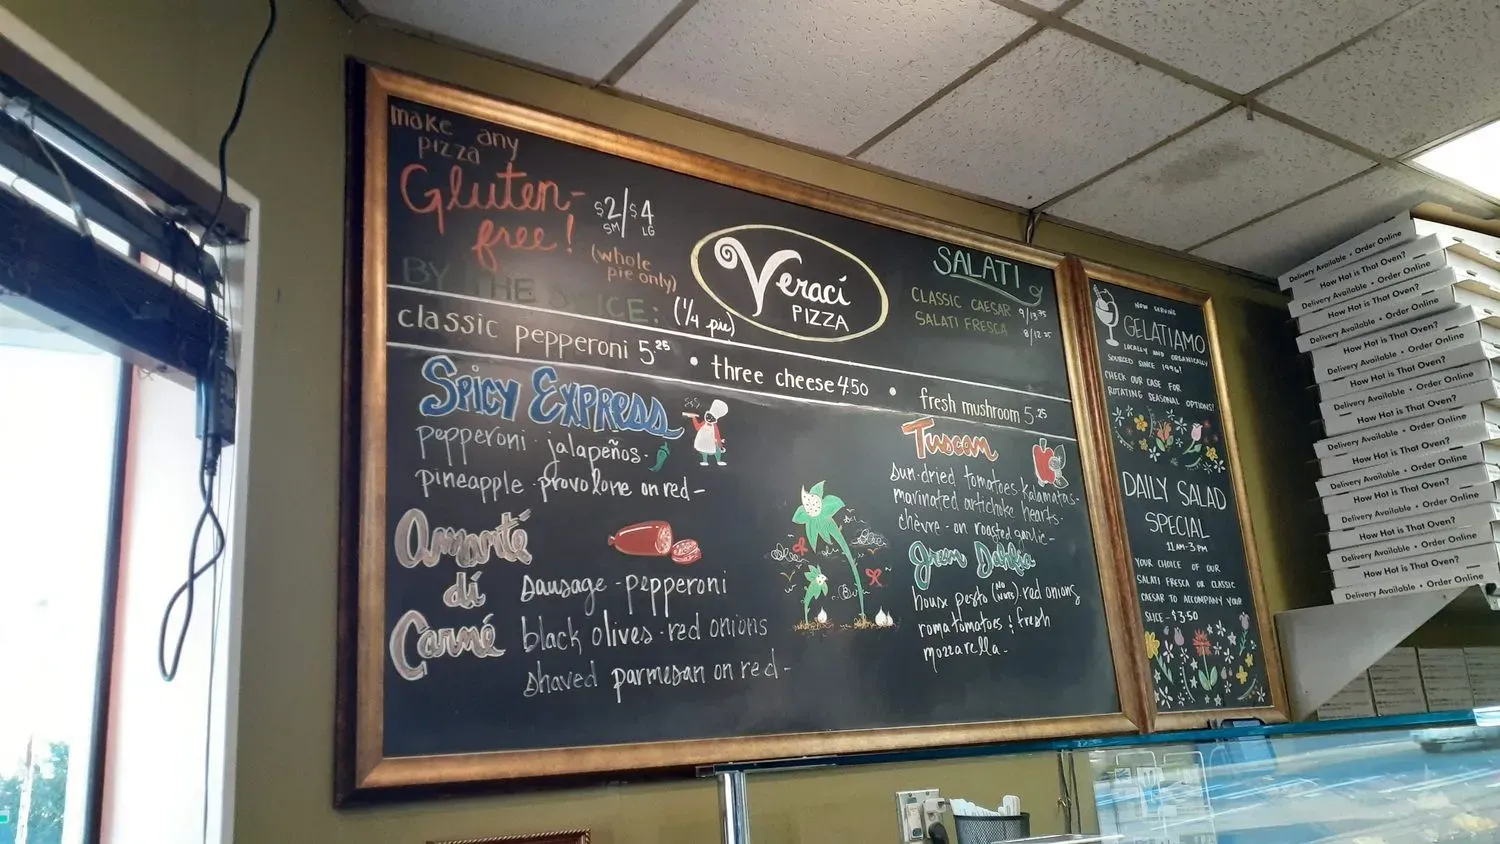 make any
pizza
Gluten-
free!
$2/$4
SM LG
(whole
pie only)
BY THE SLICE: (1/4 pie)
Veraci
PIZZA
SALATI
CLASSIC CAESAR 9/13.75
SALATI FRESCA 8/12.25
classic pepperoni 5.25 • three cheese 4.50 • fresh mushroom 5.25
Spicy Express
pepperoni · jalapeños ·
pineapple · provolone on red -
Amanté
di
Carné
sausage · pepperoni
black olives · red onions
shaved parmesan on red -
Tuscan
sun-dried tomatoes · kalamatas ·
marinated artichoke hearts ·
chèvre · on roasted garlic -
Green Dahlia
house pesto (NO NUTS) · red onions
roma tomatoes : fresh
mozzarella -
NOW SERVING
GELATIAMO
LOCALLY AND ORGANICALLY
SOURCED SINCE 1996!
CHECK OUR CASE FOR
ROTATING SEASONAL OPTIONS!
DAILY SALAD
SPECIAL
11AM-3PM
YOUR CHOICE OF OUR
SALATI FRESCA OR CLASSIC
CAESAR TO ACCOMPANY YOUR
SLICE - $3.50
Delivery Available • Order Online
How Hot is That Oven?
Delivery Available • Order Online
How Hot is That Oven?
Delivery Available • Order Online
How Hot is That Oven?
Delivery Available • Order Online
How Hot is That Oven?
Delivery Available • Order Online
How Hot is That Oven?
Delivery Available • Order Online
How Hot is That Oven?
Delivery Available • Order Online
How Hot is That Oven?
Delivery Available • Order Online
How Hot is That Oven?
Delivery Available • Order Online
How Hot is That Oven?
Delivery Available • Order Online